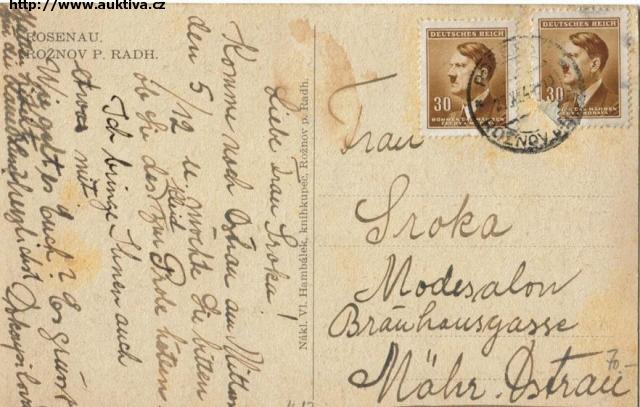 http://www.auktiva.cz
ROSENAU,
ROŽNOV P. RADH.
Nákl. Vl. Hambálek, knihkupec, Rožnov p. Radh.
DEUTSCHES REICH
30
BÖHMEN UND MÄHREN
ČECHY A MORAVA
DEUTSCHES REICH
30
BÖHMEN UND MÄHREN
ČECHY A MORAVA
ROŽNOV
Frau
Sroka
Modesalon
Bräuhausgasse
Mähr. Ostrau
70
Liebe Frau Sroka!
Komme nach Ostrau am
den 5/12 u. möchte Sie bitten
ob Sie das Kleid zur Probe
Ich bringe Ihnen auch
etwas mit
Wie geht es Euch? Es grüsst